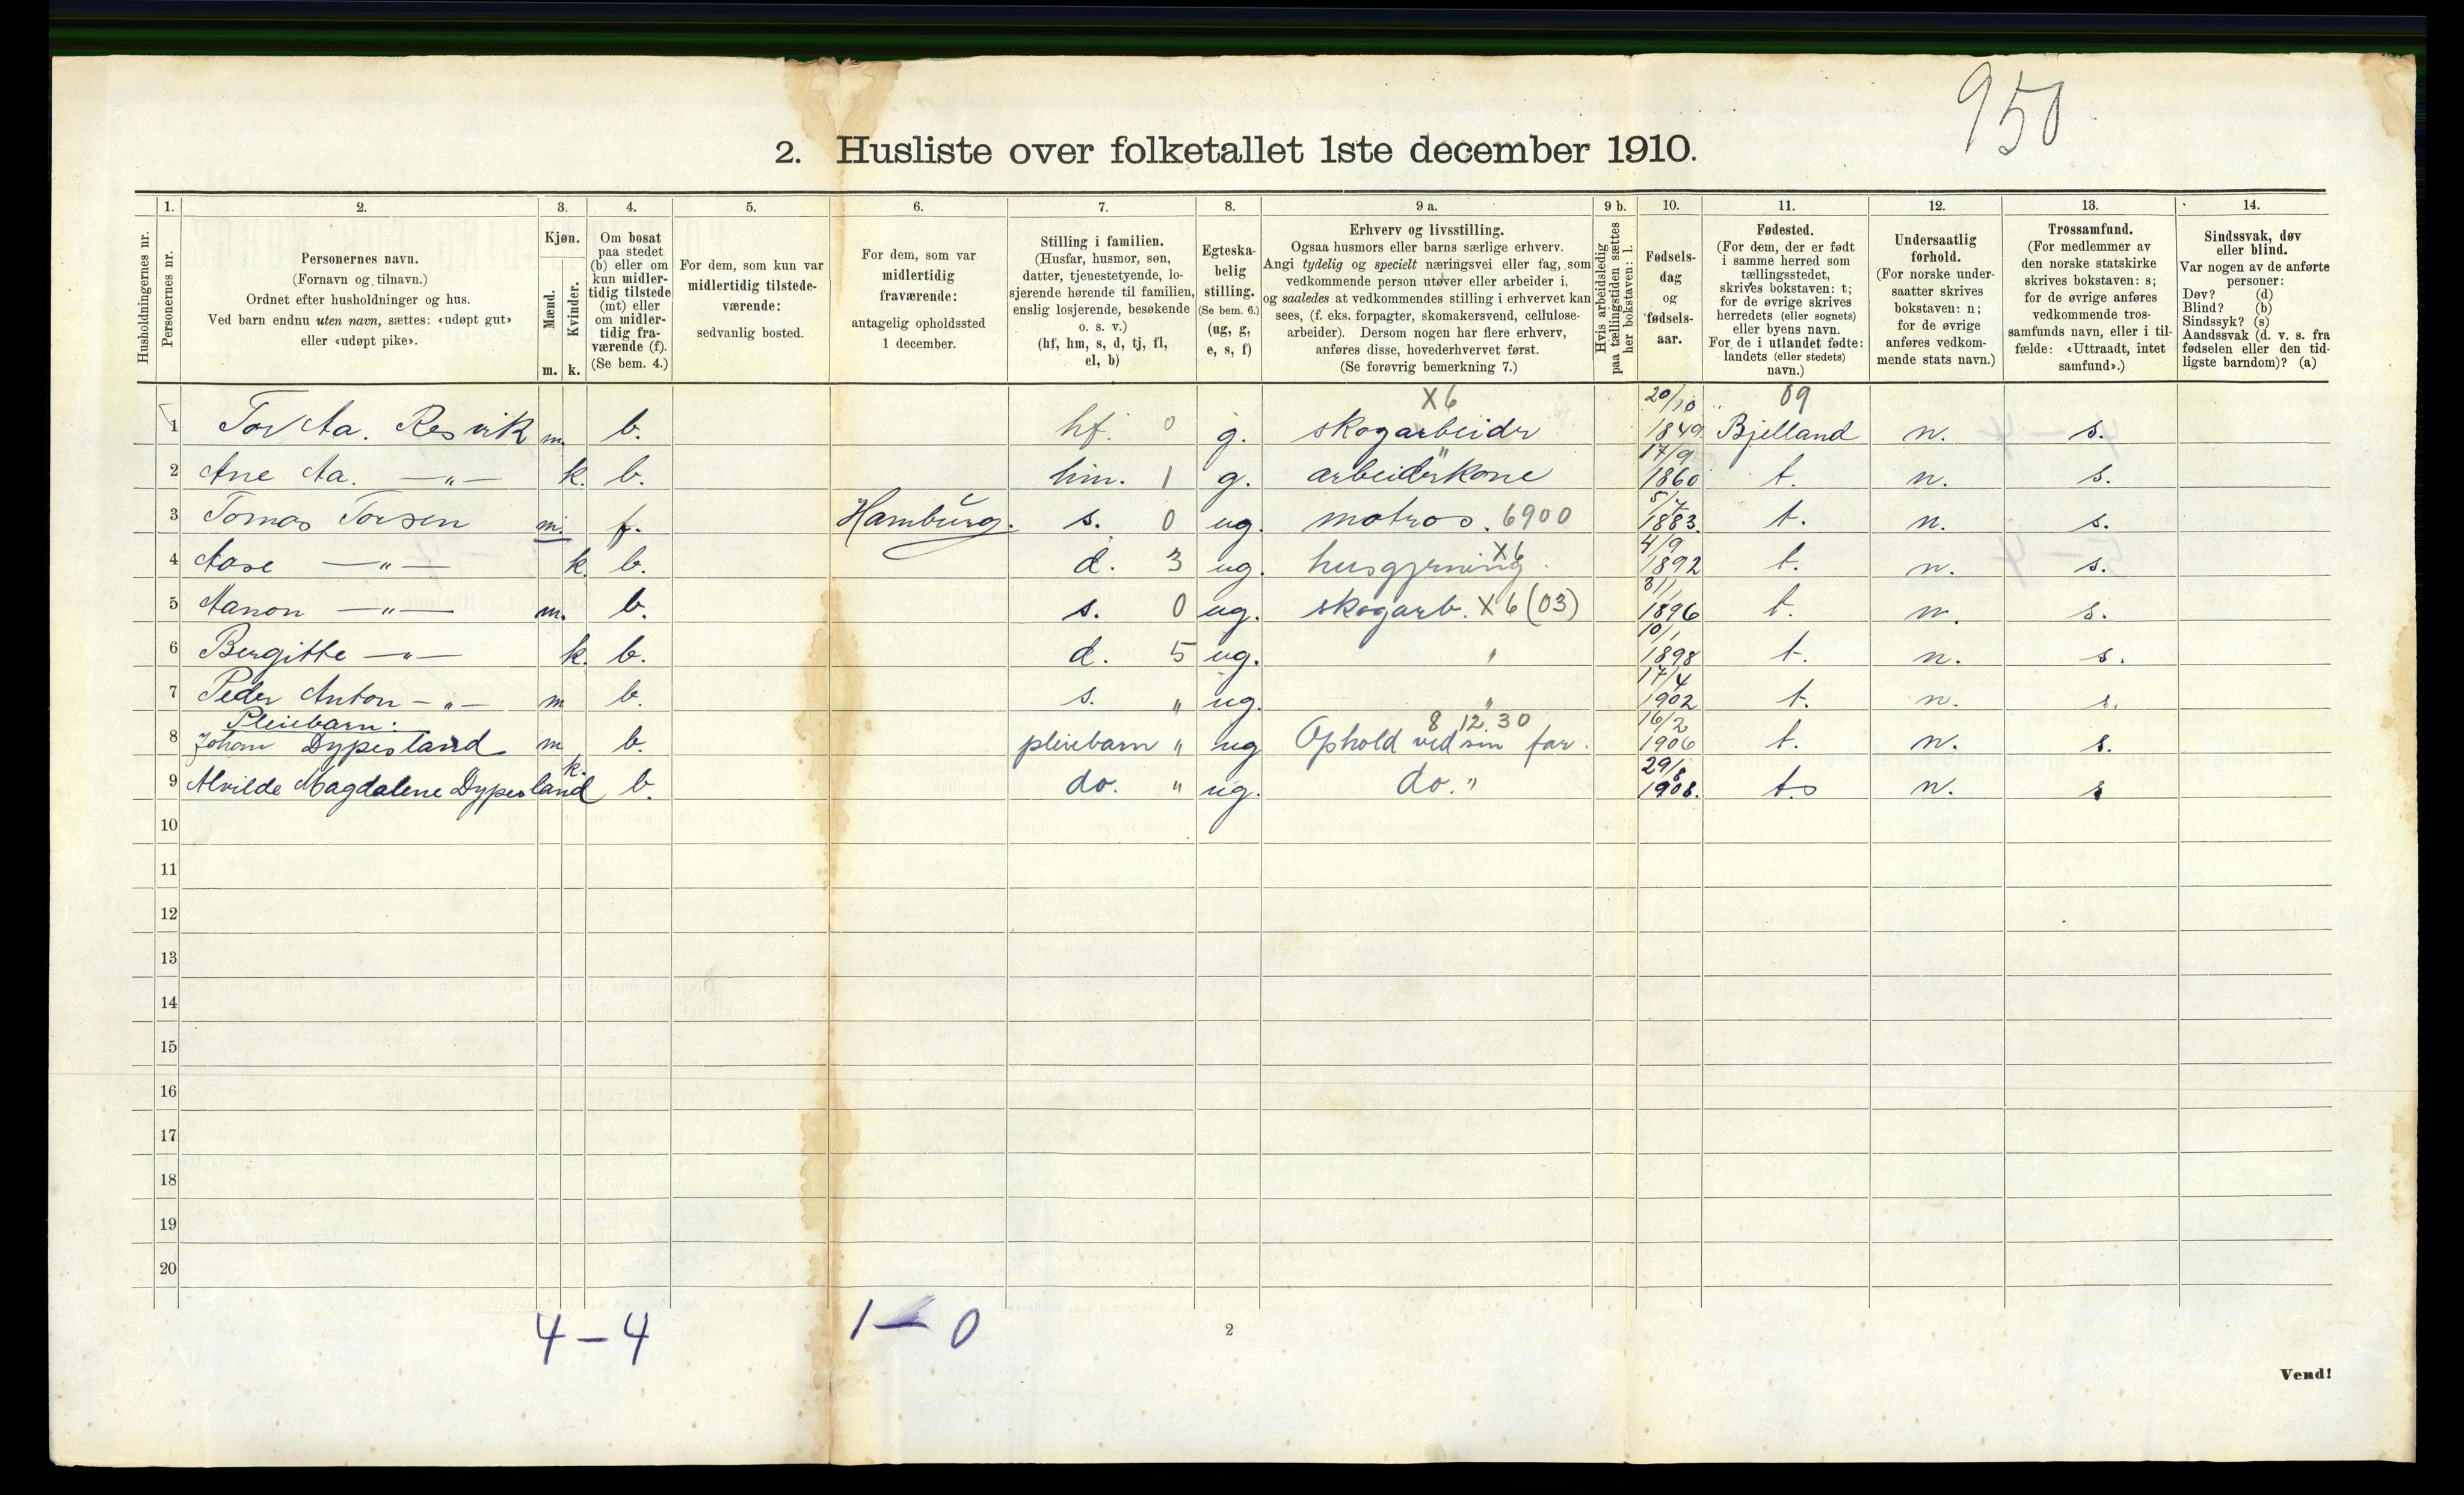 950
2. Husliste over folketallet 1ste december 1910.
1. 2. 3. 4. 5. 6. 7. 8. 9 a. 9 b. 10. 11. 12. 13. 14.
Husholdningernes nr.
Personernes nr.
Personernes navn.
(Fornavn og tilnavn.)
Ordnet efter husholdninger og hus.
Ved barn endnu uten navn, sættes: «udøpt gut»
eller «udøpt pike».
Kjøn.
Mænd.
Kvinder.
m. k.
Om bosat
paa stedet
(b) eller om
kun midler-
tidig tilstede
(mt) eller
om midler-
tidig fra-
værende (f).
(Se bem. 4.)
For dem, som kun var
midlertidig tilstede-
værende:
sedvanlig bosted.
For dem, som var
midlertidig
fraværende:
antagelig opholdssted
1 december.
Stilling i familien.
(Husfar, husmor, søn,
datter, tjenestetyende, lo-
sjerende hørende til familien,
enslig losjerende, besøkende
o. s. v.)
(hf, hm, s, d, tj, fl,
el, b)
Egteska-
belig
stilling.
(Se bem. 6.)
(ug, g,
e, s, f)
Erhverv og livsstilling.
Ogsaa husmors eller barns særlige erhverv.
Angi tydelig og specielt næringsvei eller fag, som
vedkommende person utøver eller arbeider i,
og saaledes at vedkommendes stilling i erhvervet kan
sees, (f. eks. forpagter, skomakersvend, cellulose-
arbeider). Dersom nogen har flere erhverv,
anføres disse, hovederhvervet først.
(Se forøvrig bemerkning 7.)
Hvis arbeidsledig
paa tællingstiden sættes
her bokstaven: l.
Fødsels-
dag
og
fødsels-
aar.
Fødested.
(For dem, der er født
i samme herred som
tællingsstedet,
skrives bokstaven: t;
for de øvrige skrives
herredets (eller sognets)
eller byens navn.
For de i utlandet fødte:
landets (eller stedets)
navn.)
Undersaatlig
forhold.
(For norske under-
saatter skrives
bokstaven: n;
for de øvrige
anføres vedkom-
mende stats navn.)
Trossamfund.
(For medlemmer av
den norske statskirke
skrives bokstaven: s;
for de øvrige anføres
vedkommende tros-
samfunds navn, eller i til-
fælde: «Uttraadt, intet
samfund».)
Sindssvak, døv
eller blind.
Var nogen av de anførte
personer:
Døv? (d)
Blind? (b)
Sindssyk? (s)
Aandssvak (d. v. s. fra
fødselen eller den tid-
ligste barndom)? (a)
X6 20/10 09
1 Tor Aa. Resvik m. b. hf. 0 g. skogarbeidr 1849 Bjelland n. s.
17/9
2 Ane Aa. —„— k. b. hm. 1 g. arbeiderkone 1860 t. n. s.
5/7
3 Tomas Torsen m. f. Hamburg. s. 0 ug. matros. 6900 1883. t. n. s.
X6 4/9
4 Aase —„— k. b. d. 3 ug. husgjrning. 1892 t. n. s.
5 Aanon —„— m. b. s. 0 ug. skogarb. X6 (03) 1896 t. n. s.
10/1
6 Bergitte —„— k. b. d. 5 ug. „ 1898 t. n. s.
17/4
7 Peder Anton —„— m b. s. „ ug. „ 1902 t. n. s.
Pleiebarn: 8 12.30 16/2
8 Johan Dypesland m b. pleiebarn „ ug Ophold ved sin far. 1906 t. n. s.
k. 29/8
9 Alvilde Magdalene Dypesland b. do. „ ug. do. „ 1908. t. n. s
10
11
12
13
14
15
16
17
18
19
20
4 — 4 1 — 0
2
Vend!